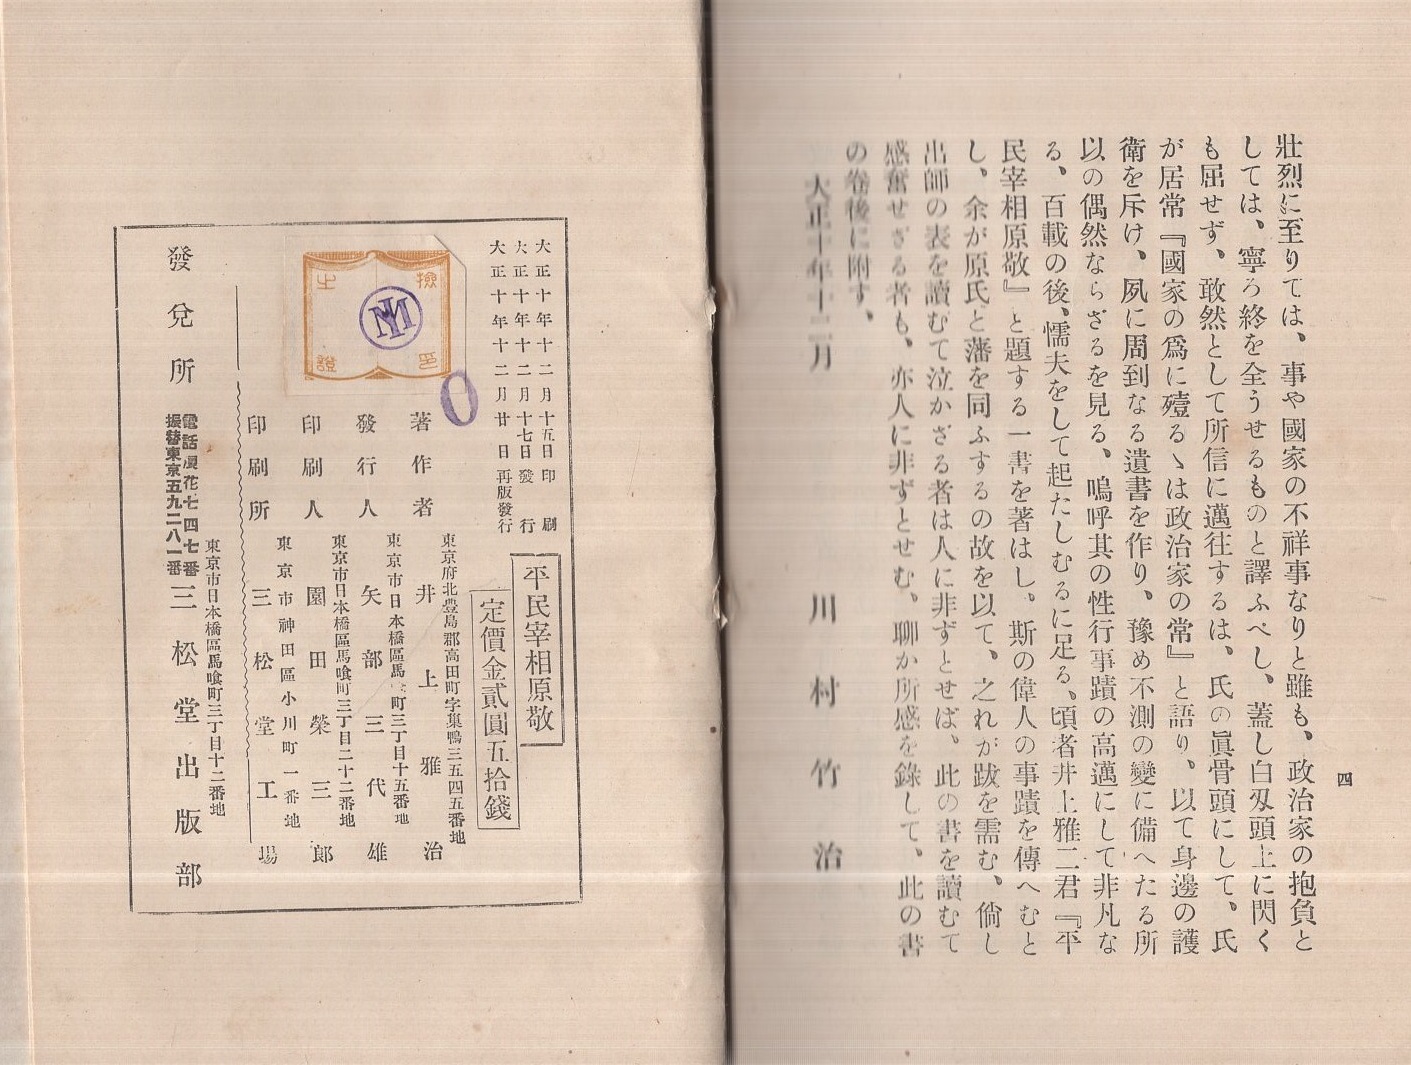 四
壯烈に至りては、事や國家の不祥事なりと雖も、政治家の抱負と
しては、寧ろ終を全うせるものと譯ふべし、蓋し白刄頭上に閃く
も屈せず、敢然として所信に邁往するは、氏の眞骨頭にして、氏
が居常『國家の爲に殪るゝは政治家の常』と語り、以て身邊の護
衛を斥け、夙に周到なる遺書を作り、豫め不測の變に備へたる所
以の偶然ならざるを見る、嗚呼其の性行事蹟の高邁にして非凡な
る、百載の後、懦夫をして起たしむるに足る、頃者井上雅二君『平
民宰相原敬』と題する一書を著はし、斯の偉人の事蹟を傳へむと
し、余が原氏と藩を同ふするの故を以て、之れが跋を需む、倘し
出師の表を讀むて泣かざる者は人に非ずとせば、此の書を讀むて
感奮せざる者も、亦人に非ずとせむ、聊か所感を錄して、此の書
の卷後に附す、
大正十年十二月
川村竹治
大正十年十二月十五日印刷
大正十年十二月十七日發行
大正十年十二月廿日再版發行
平民宰相原敬
定價金貳圓五拾錢
檢印之證
著作者
東京府北豊島郡高田町字巣鴨三五四五番地
井上雅治
發行人
東京市日本橋區馬喰町三丁目十五番地
矢部三代雄
印刷人
東京市日本橋區馬喰町三丁目二十二番地
園田榮三郎
印刷所
東京市神田區小川町一番地
三松堂工場
發兌所
東京市日本橋區馬喰町三丁目十二番地
三松堂出版部
電話浪花七四七番
振替東京五九二八一番